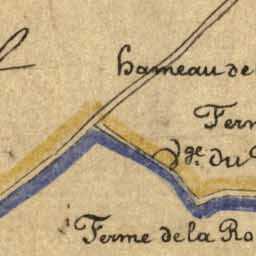 hameau de
Ferm
dge. du
Ferme de la Ro